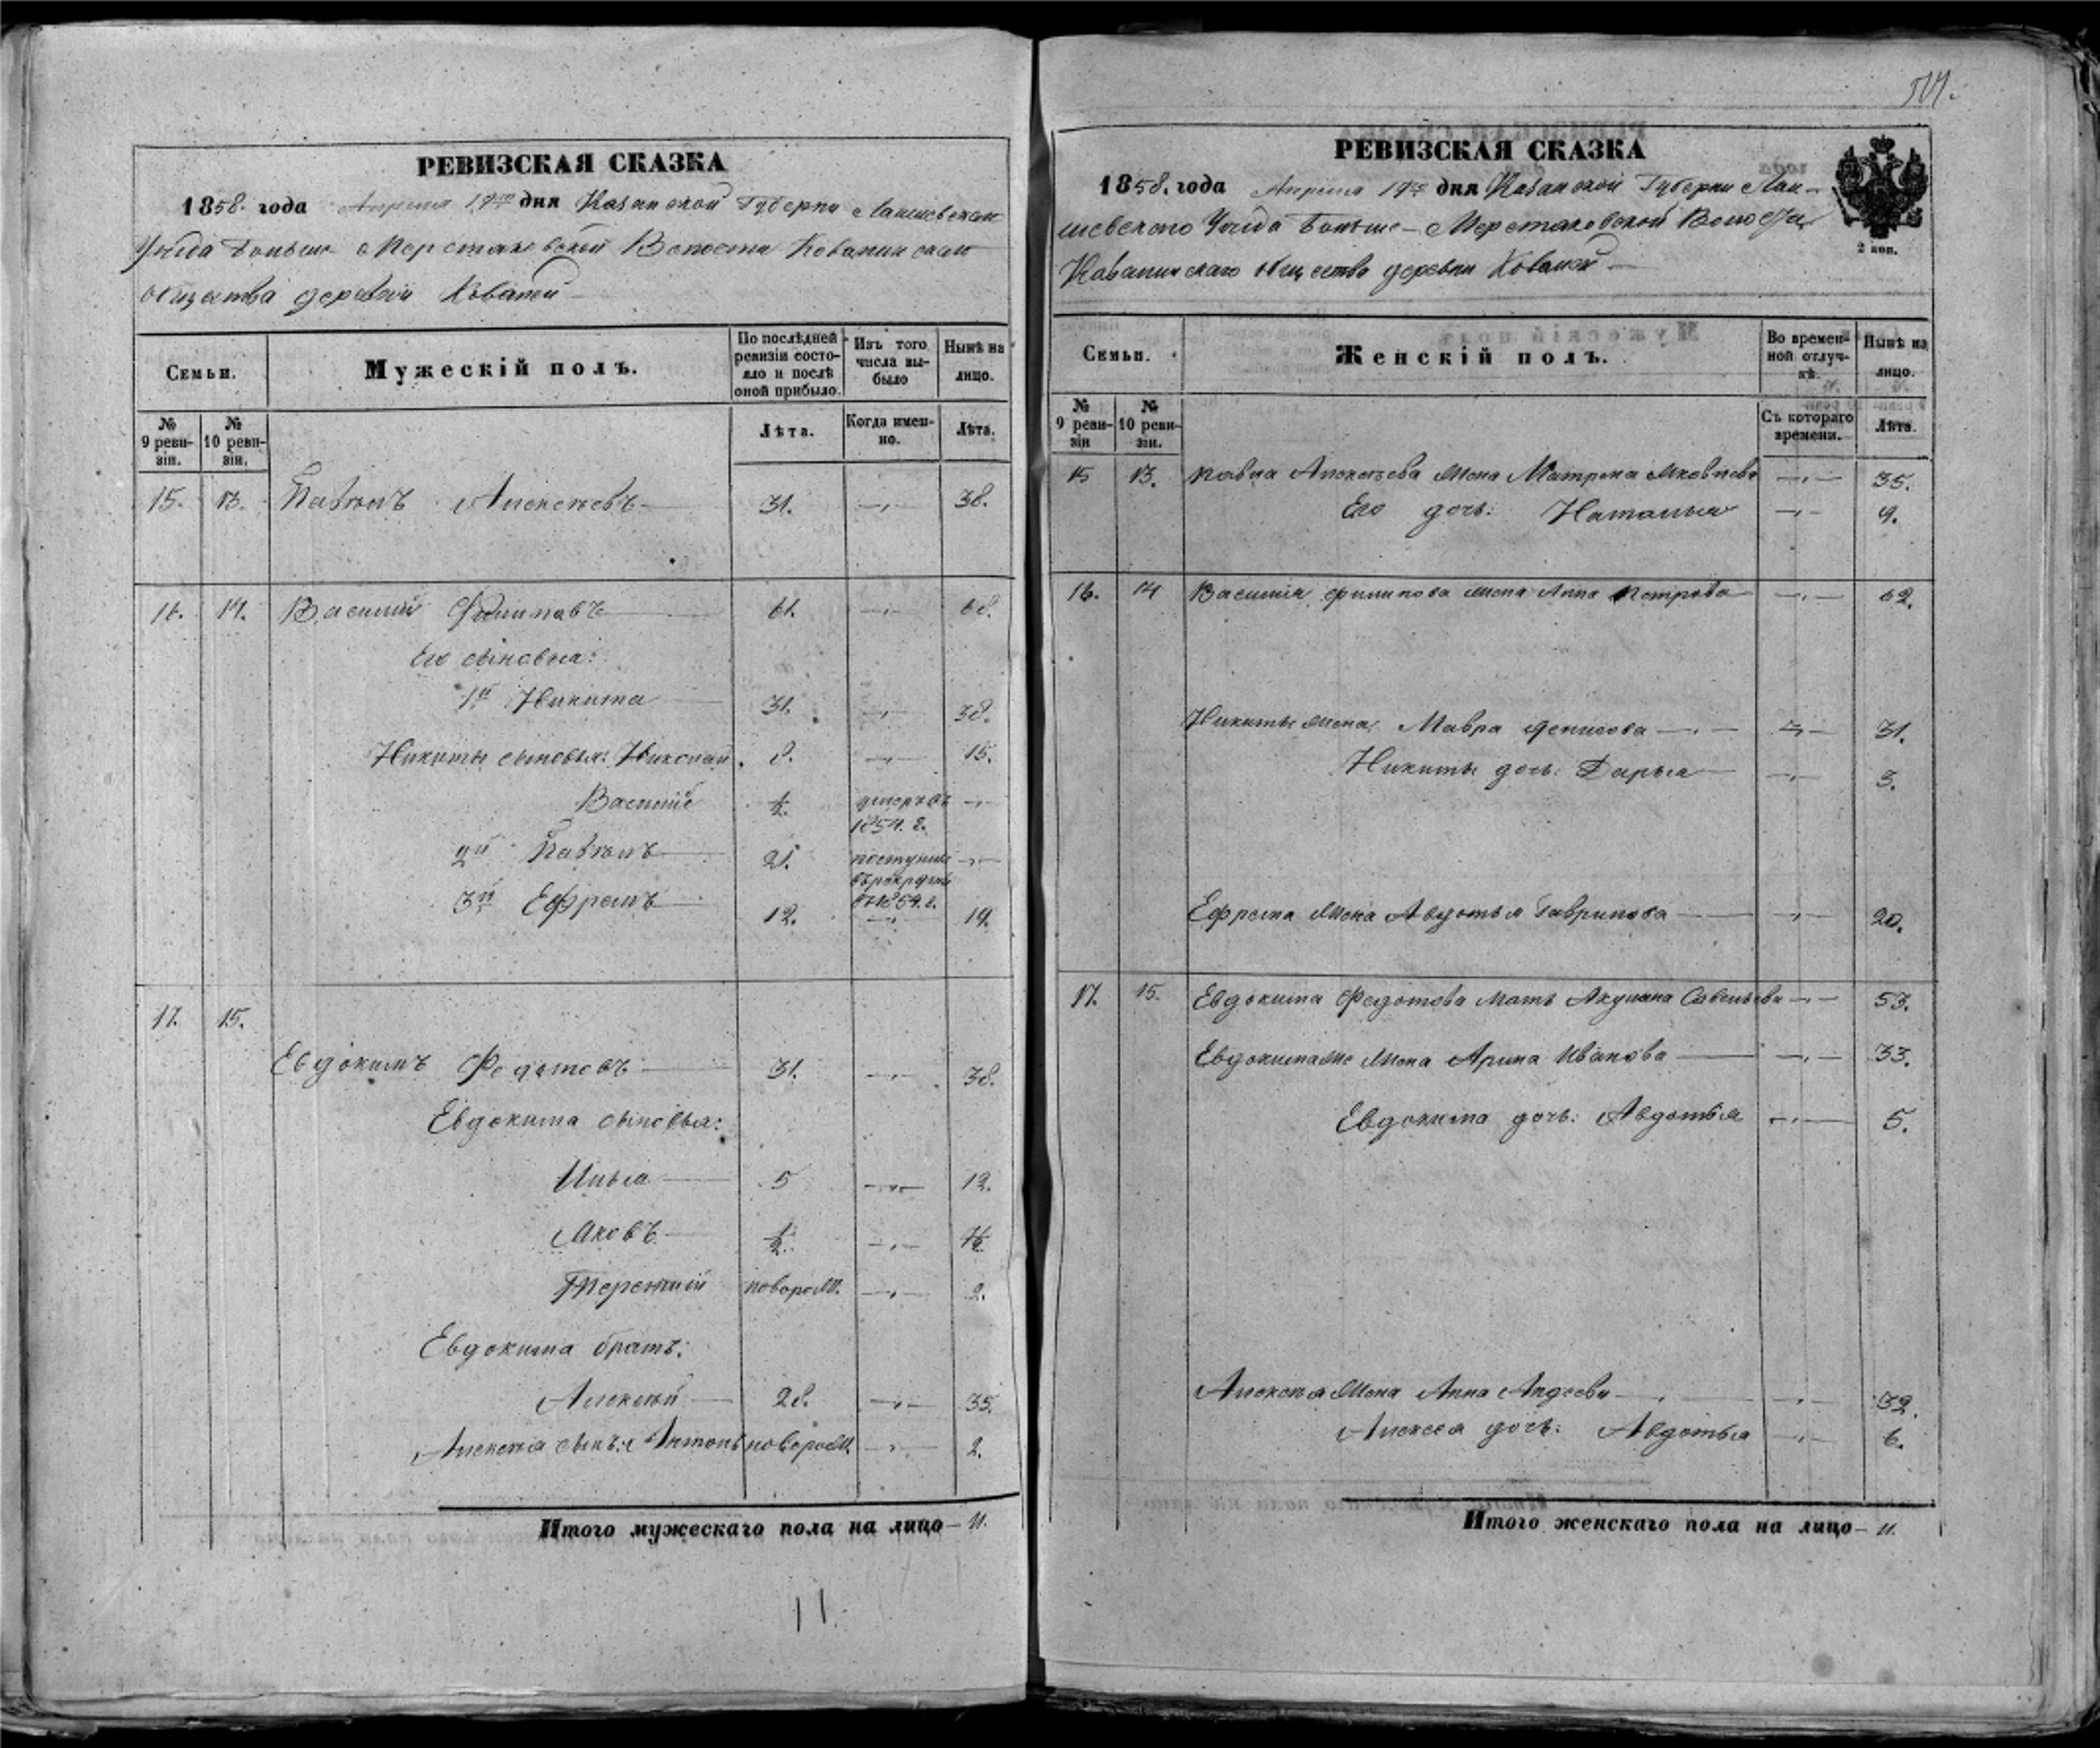 РЕВИЗСКАЯ СКАЗКА
1858. года Апреля 19го дня Казанской Губерни Лаишевскаго
Уѣзда Больше Меретяковской Волости Ковалинскаго
общества деревни Ковалей
Семьи.
Мужескій полъ.
По послѣдней ревизіи состояло и послѣ оной прибыло.
Изъ того числа выбыло
Нынѣ на лицо.
№ 9 ревизіи.
№ 10 ревизіи.
Лѣта.
Когда именно.
Лѣта.
15. 13. Павелъ Алексѣевъ 31. —„— 38.
16. 14. Василий Филиповъ 61. —„— 68.
Его сыновья:
1й Никита 31. —„— 38.
Никиты сыновья: Николай. 8. —„— 15.
Василий ½. умеръ въ 1854. г. —„—
2й Павелъ 21. поступилъ въ рекруты въ 1854. г. —„—
3й Ефремъ 12. —„— 19.
17. 15.
Евдокимъ Федотовъ 31. —„— 38.
Евдокима сыновья:
Илья 5 —„— 12.
Яковъ ½. —„— 7½
Терентий новорож. —„— 2.
Евдокима братъ:
Алексѣй 28. —„— 35.
Алексѣя сынъ: Антонъ новорож. —„— 2.
Итого мужескаго пола на лицо — 11.
11.
РЕВИЗСКАЯ СКАЗКА
1858. года Апреля 19го дня Казанской Губерни Лаи-
шевскаго Уѣзда Больше-Меретяковской Волости
Ковалинскаго общества деревни Ковалей
2 коп.
Семьи.
Женскій полъ.
Во временной отлучкѣ.
Нынѣ на лицо.
№ 9 ревизіи
№ 10 ревизіи.
Съ котораго времени.
Лѣта.
15 13. Павла Алексѣева жена Матрена Яковлева —„— 35.
Его дочь: Наталья —„— 9.
16. 14 Василия Филипова жена Анна Петрова —„— 62.
Никиты жена Мавра Денисова —„— 31.
Никиты дочь: Дарья —„— 3.
Ефрема жена Авдотья Гаврилова —„— 20.
17. 15. Евдокима Федотова мать Акулина Савельева —„— 53.
Евдокима же жена Арина Иванова —„— 33.
Евдокима дочь: Авдотья —„— 5.
Алексѣя жена Анна Авдеева —„— 32.
Алексея дочь: Авдотья —„— 6.
Итого женскаго пола на лицо — 11.